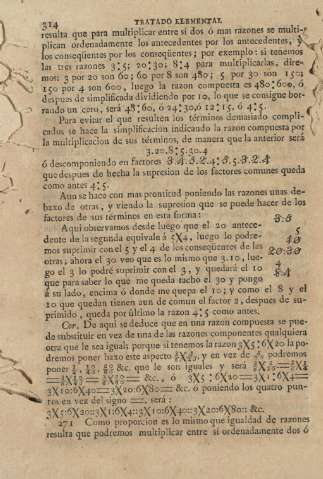 314 TRATADO ELEMENTAL
resulta que para multiplicar entre sí dos ó mas razones se multi-
plican ordenadamente los antecedentes por los antecedentes, y
los conseqüentes por los conseqüentes; por exemplo: si tenemos
las tres razones 3:5; 20:30; 8:4 para multiplicarlas, dire-
mos: 3 por 20 son 60; 60 por 8 son 480; 5 por 30 son 150;
150 por 4 son 600, luego la razon compuesta es 480:600, ó
despues de simplificada dividiendo por 10, lo que se consigue bor-
rando un cero, será 48:60, ó 24:30, ó 12:15, ó 4:5.
Para evitar el que resulten los términos demasiado compli-
cados se hace la simplificacion indicando la razon compuesta por
la multiplicacion de sus términos, de manera que la anterior será
3.20.8:5.30.4
ó descomponiendo en factores 3.4.3.2.4:3.5.3.2.4
que despues de hecha la supresion de los factores comunes queda
como antes 4:5.
Aun se hace con mas prontitud poniendo las razones unas de-
baxo de otras, y viendo la supresion que se puede hacer de los
factores de sus términos en esta forma:
Aquí observamos desde luego que el 20 antece-
dente de la segunda equivale á 5X4, luego lo podre-
mos suprimir con el 5 y el 4 de los conseqüentes de las
otras; ahora el 30 veo que es lo mismo que 3.10, lue-
go el 3 lo podré suprimir con el 3, y quedará el 10
que para saber lo que me queda tacho el 30 y pongo
á su lado, encima ó donde me quepa el 10; y como el 8 y el
20 que quedan tienen aun de comun el factor 2, despues de su-
primido, queda por último la razon 4:5 como antes.
Cor. De aquí se deduce que en una razon compuesta se pue-
de substituir en vez de una de las razones componentes qualquiera
otra que le sea igual; porque si tenemos la razon 3X5:6X20 la po-
dremos poner baxo este aspecto
poner &c. que le son iguales y será
&c., ó 3X5:6X20=3X1:6X4=
3X10:6X40=3X20:6X80= &c. ó poniendo los quatro pun-
tos en vez del signo =, será:
3X5:6X20::3X1:6X4::3X10:6X40::3X20:6X80:: &c.
271 Como proporcion es lo mismo que igualdad de razones
resulta que podremos multiplicar entre sí ordenadamente dos ó